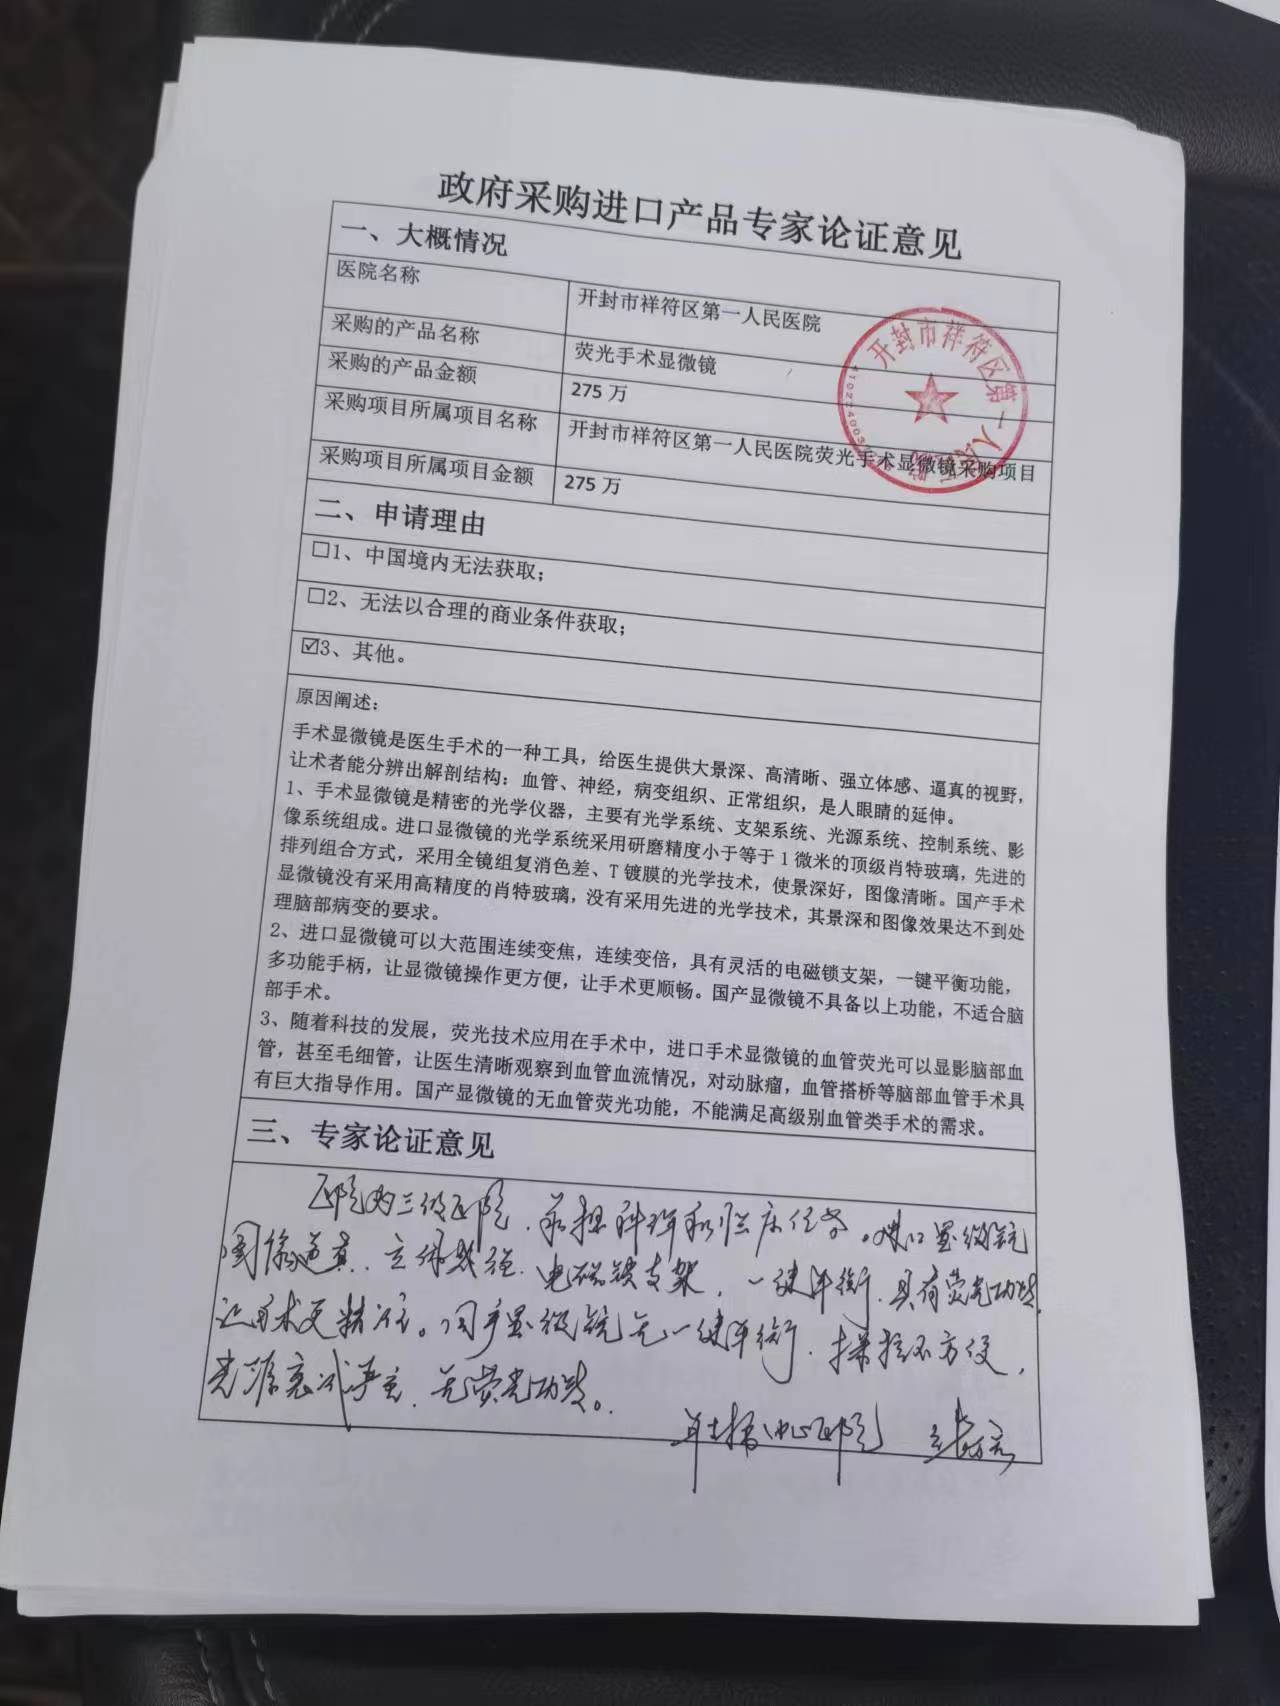 政府采购进口产品专家论证意见
一、大概情况
医院名称
开封市祥符区第一人民医院
采购的产品名称
荧光手术显微镜
采购的产品金额
275 万
采购项目所属项目名称
开封市祥符区第一人民医院荧光手术显微镜采购项目
采购项目所属项目金额
275 万
开封市祥符区第一人民医院
二、申请理由
☐1、中国境内无法获取;
☐2、无法以合理的商业条件获取;
☑3、其他。
原因阐述:
手术显微镜是医生手术的一种工具，给医生提供大景深、高清晰、强立体感、逼真的视野，
让术者能分辨出解剖结构：血管、神经，病变组织、正常组织，是人眼睛的延伸。
1、手术显微镜是精密的光学仪器，主要有光学系统、支架系统、光源系统、控制系统、影
像系统组成。进口显微镜的光学系统采用研磨精度小于等于 1 微米的顶级肖特玻璃，先进的
排列组合方式，采用全镜组复消色差、T 镀膜的光学技术，使景深好，图像清晰。国产手术
显微镜没有采用高精度的肖特玻璃，没有采用先进的光学技术，其景深和图像效果达不到处
理脑部病变的要求。
2、进口显微镜可以大范围连续变焦，连续变倍，具有灵活的电磁锁支架，一键平衡功能，
多功能手柄，让显微镜操作更方便，让手术更顺畅。国产显微镜不具备以上功能，不适合脑
部手术。
3、随着科技的发展，荧光技术应用在手术中，进口手术显微镜的血管荧光可以显影脑部血
管，甚至毛细管，让医生清晰观察到血管血流情况，对动脉瘤，血管搭桥等脑部血管手术具
有巨大指导作用。国产显微镜的无血管荧光功能，不能满足高级别血管类手术的需求。
三、专家论证意见
医院为三级医院，承担科研和临床任务。进口显微镜
图像逼真、立体感强、电磁锁支架，一键平衡，具有荧光功能，
让手术更精准。国产显微镜无一键平衡，操控不方便，
光源衰减严重，无荧光功能。
中心医院